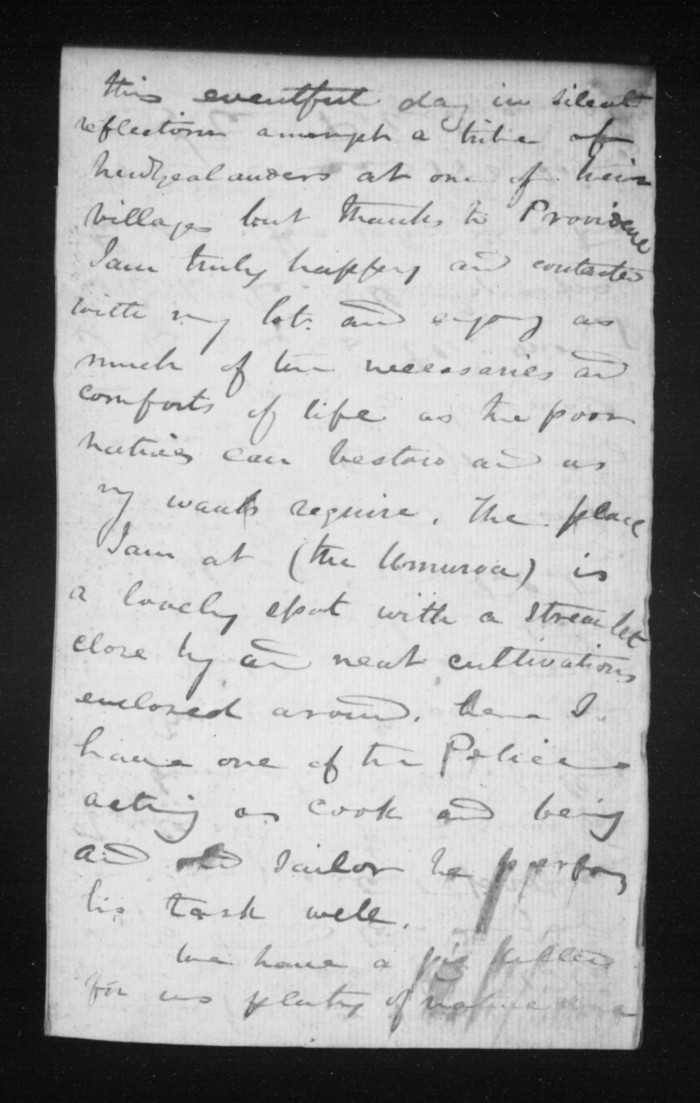 this eventful day in silent
reflection amongst a tribe of
NewZealanders at one of their
villages but thanks to Providence
I am truly happy and contented
with my lot. and enjoy as
much of the necessaries and
comforts of life as the poor
natives can bestow and as
my wants require. The place
I am at (the Umuroa) is
a lovely spot with a streamlet
close by and neat cultivations
enclosed around. Here I
have one of the Police
acting as cook and being
and old Sailor he performs
his task well.
We have a pig killed
for us plenty of native